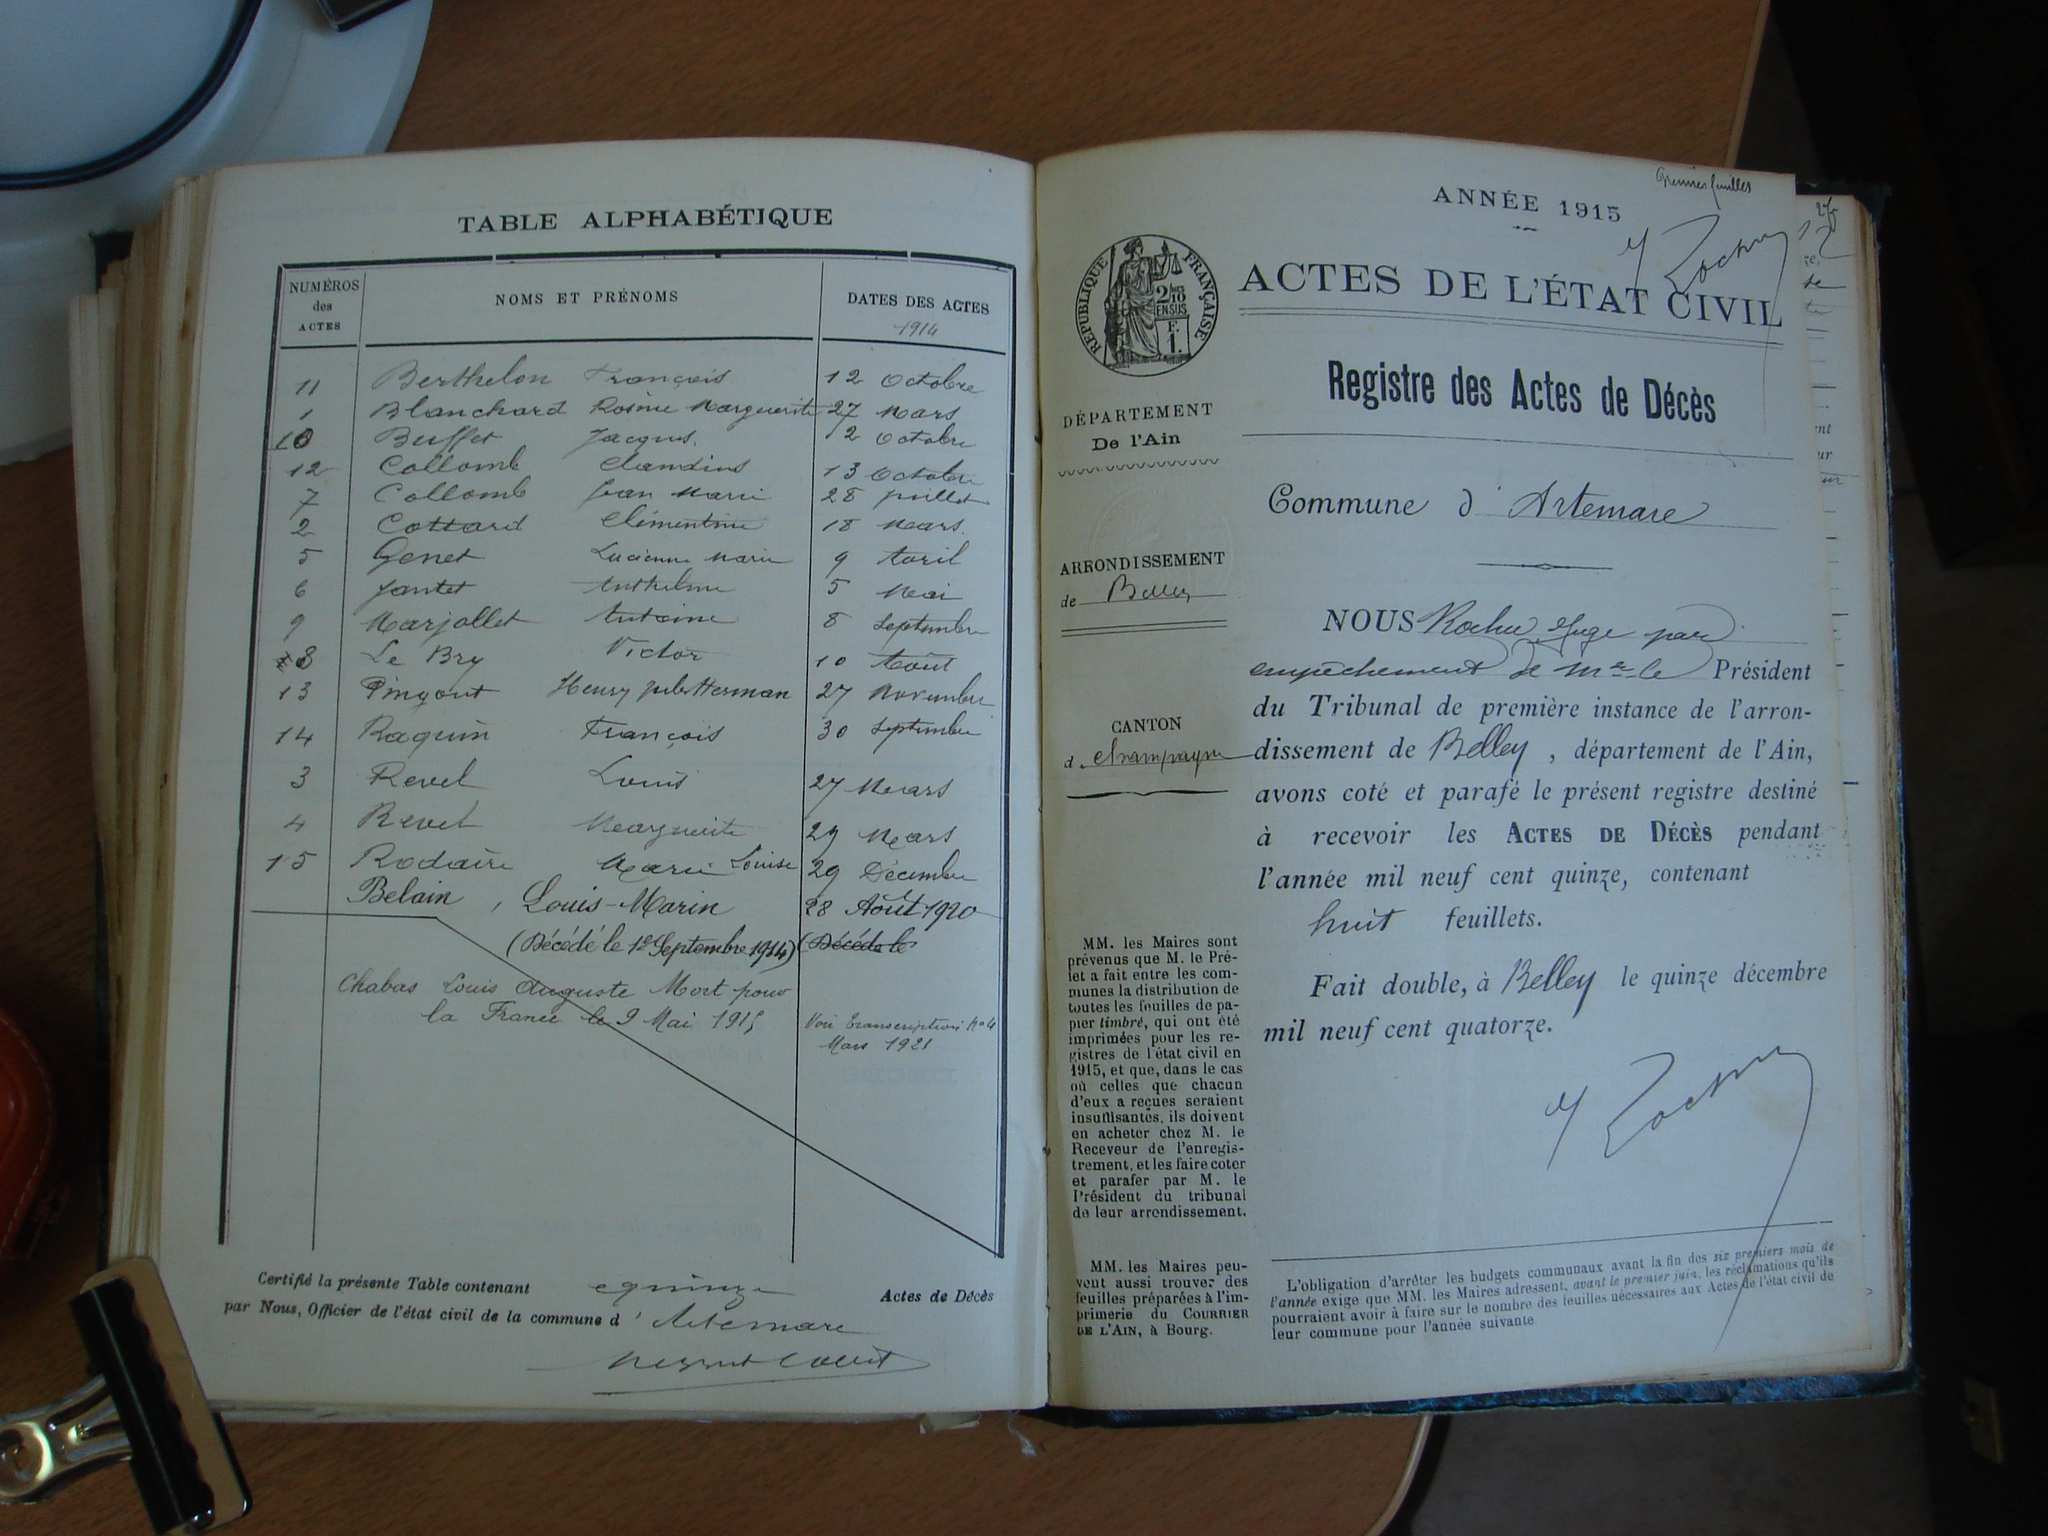 TABLE ALPHABÉTIQUE
NUMÉROS des ACTES
NOMS ET PRÉNOMS
DATES DES ACTES
1914
11 Berthelon François 12 Octobre
1 Blanchard Rosine Marguerite 27 Mars
10 Buffet Jacques. 2 Octobre
12 Collomb Claudius 13 Octobre
7 Collomb Jean Marie 28 Juillet
2 Cottard Clémentine 18 Mars.
5 Genet Lucienne Marie 9 Avril
6 Jantet Anthelme 5 Mai
9 Marjollet Antoine 8 Septembre
8 Le Bry Victor 10 Août
13 Pinçont Henry Herman 27 Novembre
14 Raquin François 30 Septembre
3 Revel Louis 27 Mars
4 Revel Marguerite 29 Mars
15 Rodaire Marie Louise 29 Décembre
Belain, Louis-Marin 28 Août 1920
(Décédé le 1er Septembre 1914) (Décédé le
Chabas Louis Auguste Mort pour
la France le 9 Mai 1915 Voir transcription No 4
Mars 1921
Certifié la présente Table contenant quinze Actes de Décès
par Nous, Officier de l'état civil de la commune d'Artemare
Premier feuillet
ANNÉE 1915
RÉPUBLIQUE FRANÇAISE
2/10 EN SUS
F. 1.
ACTES DE L'ÉTAT CIVIL
Registre des Actes de Décès
DÉPARTEMENT
De l'Ain
Commune d'Artemare
ARRONDISSEMENT
de Belley
CANTON
d. Champagne
NOUS Rochu Juge par
empêchement de Mr le Président
du Tribunal de première instance de l'arron-
dissement de Belley, département de l'Ain,
avons coté et parafé le présent registre destiné
à recevoir les ACTES DE DÉCÈS pendant
l'année mil neuf cent quinze, contenant
huit feuillets.
Fait double, à Belley le quinze décembre
mil neuf cent quatorze.
MM. les Maires sont
prévenus que M. le Pré-
fet a fait entre les com-
munes la distribution de
toutes les feuilles de pa-
pier timbré, qui ont été
imprimées pour les re-
gistres de l'état civil en
1915, et que, dans le cas
où celles que chacun
d'eux a reçues seraient
insuffisantes, ils doivent
en acheter chez M. le
Receveur de l'enregis-
trement, et les faire coter
et parafer par M. le
Président du tribunal
de leur arrondissement.
MM. les Maires peu-
vent aussi trouver des
feuilles préparées à l'im-
primerie du COURRIER
DE L'AIN, à Bourg.
L'obligation d'arrêter les budgets communaux avant la fin des six premiers mois de
l'année exige que MM. les Maires adressent, avant le premier juin, les réclamations qu'ils
pourraient avoir à faire sur le nombre des feuilles nécessaires aux Actes de l'état civil de
leur commune pour l'année suivante